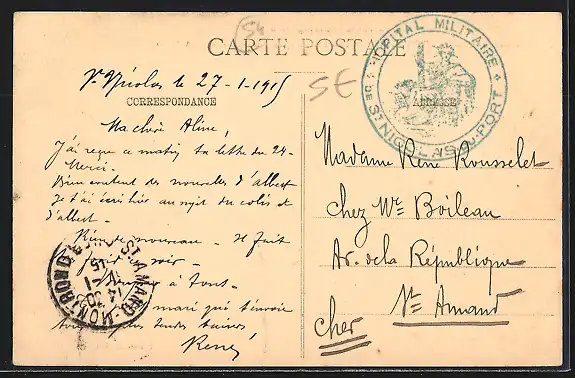 CARTE POSTALE
St Nicolas le 27-1-1915
CORRESPONDANCE
Ma chère Aline,
J'ai reçu ce matin ta lettre du 24-
Merci-
Bien content des nouvelles d'albert
Je t'ai écris hier au sujet du colis de
d'albert-
Rien de nouveau - Il fait
à tous-
mari qui t'envoie
tendres baisers
René
HOPITAL MILITAIRE
DE ST NICOLAS DU PORT
ADRESSE
SE
Madame René Rousselet
chez Mr Boileau
Av. de la République
St Amand
Cher
ST-AMAND-MONTROND
14 30
15
CHER